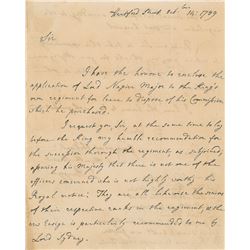 Hertford Street Octr 14th 1799
Sir
I have the honour to enclose the
application of Lord Napier Major to the King's
own regiment for leave to dispose of his Commission
which he purchased.
I request you Sir, at the same time to lay
before the King my health recommendation for
the succession through the regiment as subjoined,
assuring his Majesty that there is not one of the
officers concerned who is not highly worthy his
Royal notice; They are all likewise the seniors
of their respective ranks in the regiment & the
new Ensign is particularly recommended to me by
Lord Sydney.